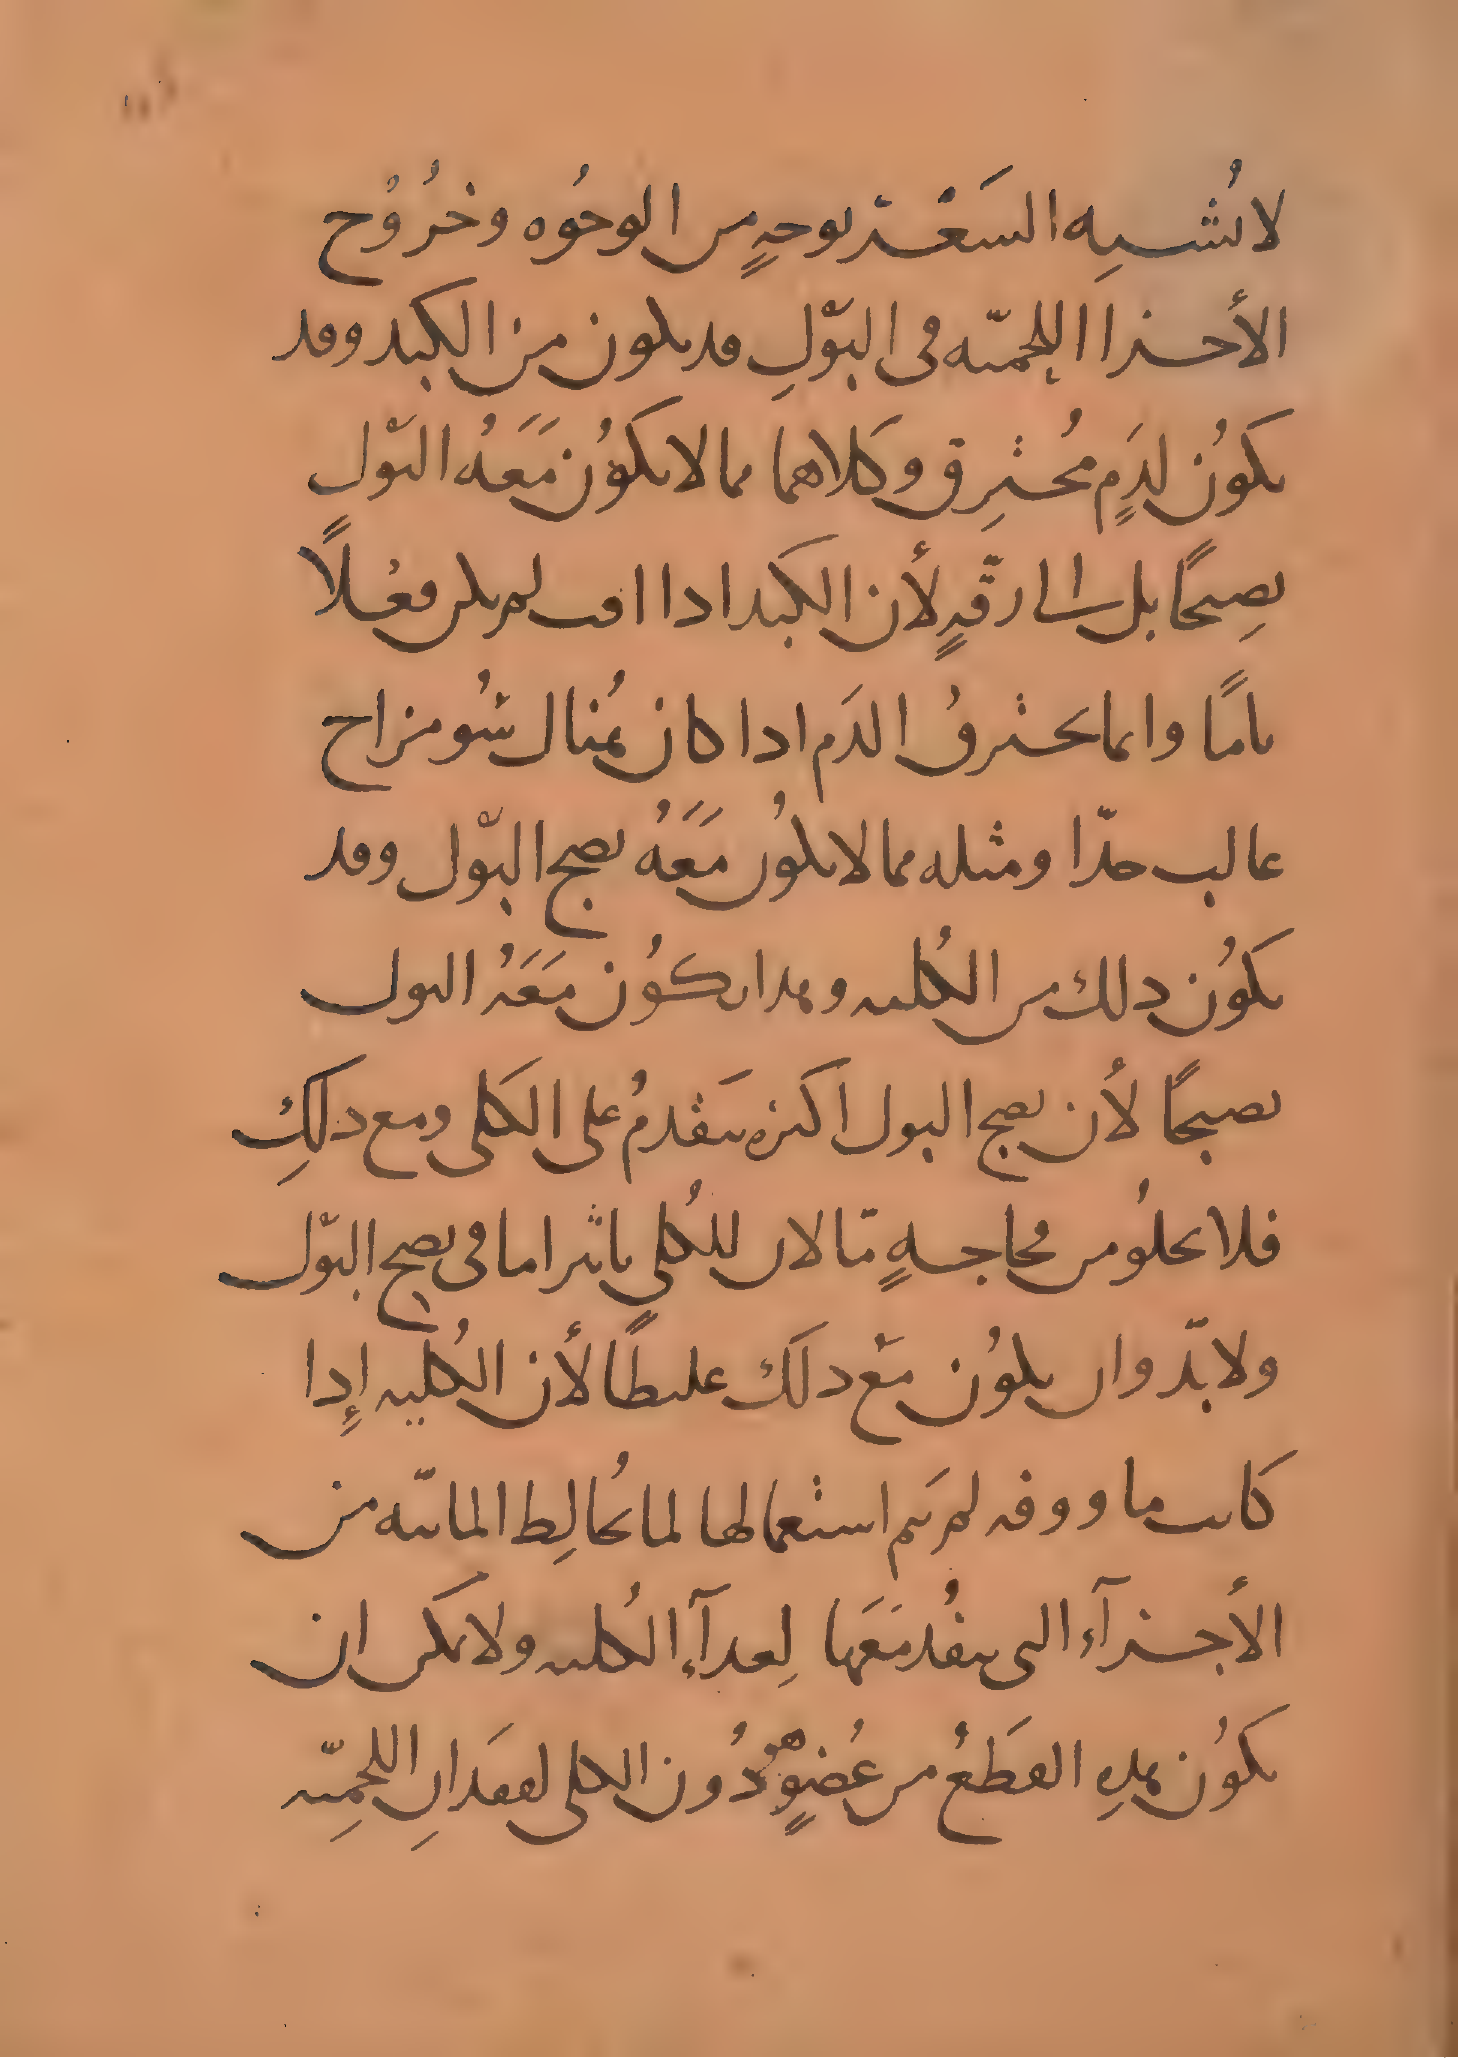 لا تُشبِه السَعَفة بوجهٍ من الوجُوه وخرُوُج
الأجزا اللحميّه فى البَوْلِ قد يكون من الكبد وقد
يكوُن لدَمٍ مُحترِق وكلاهما مما لا يكوُن مَعَهُ البَوْل
نضِيجًا بل الى رقّةٍ لأن الكبد اذا افت لم يكن فعلاً
تامًا وانما يحترقُ الدَم اذا كان هُناك سُو مزاج
غالب جدّا ومثله مما لا يكوُن مَعَهُ نضج البَوْل وقد
يكوُن ذلك من الكُليه وهذا يكوُن مَعَهُ البول
نضيجًا لأن نضج البول اكثره يتقدمُ على الكلى ومع ذلكِ
فلا يخلوُ من مجاجةٍ مّا لان للكُلى تاثيرا ما فى نضج البَوْل
ولا بدّ وان يكوُن مَع ذلك غليظًا لأن الكُليه إذا
كانت ماووفه لم يَتم استعمالها لما يُخالِط المائيّه من
الأجزآء التى ينفُد مَعَها لِغدآءِ الكُليه ولا يمكن ان
يكوُن هذهِ القطَعُ من عُضوٍ هو دُون الكلى لفقدانِ اللحمِيّه